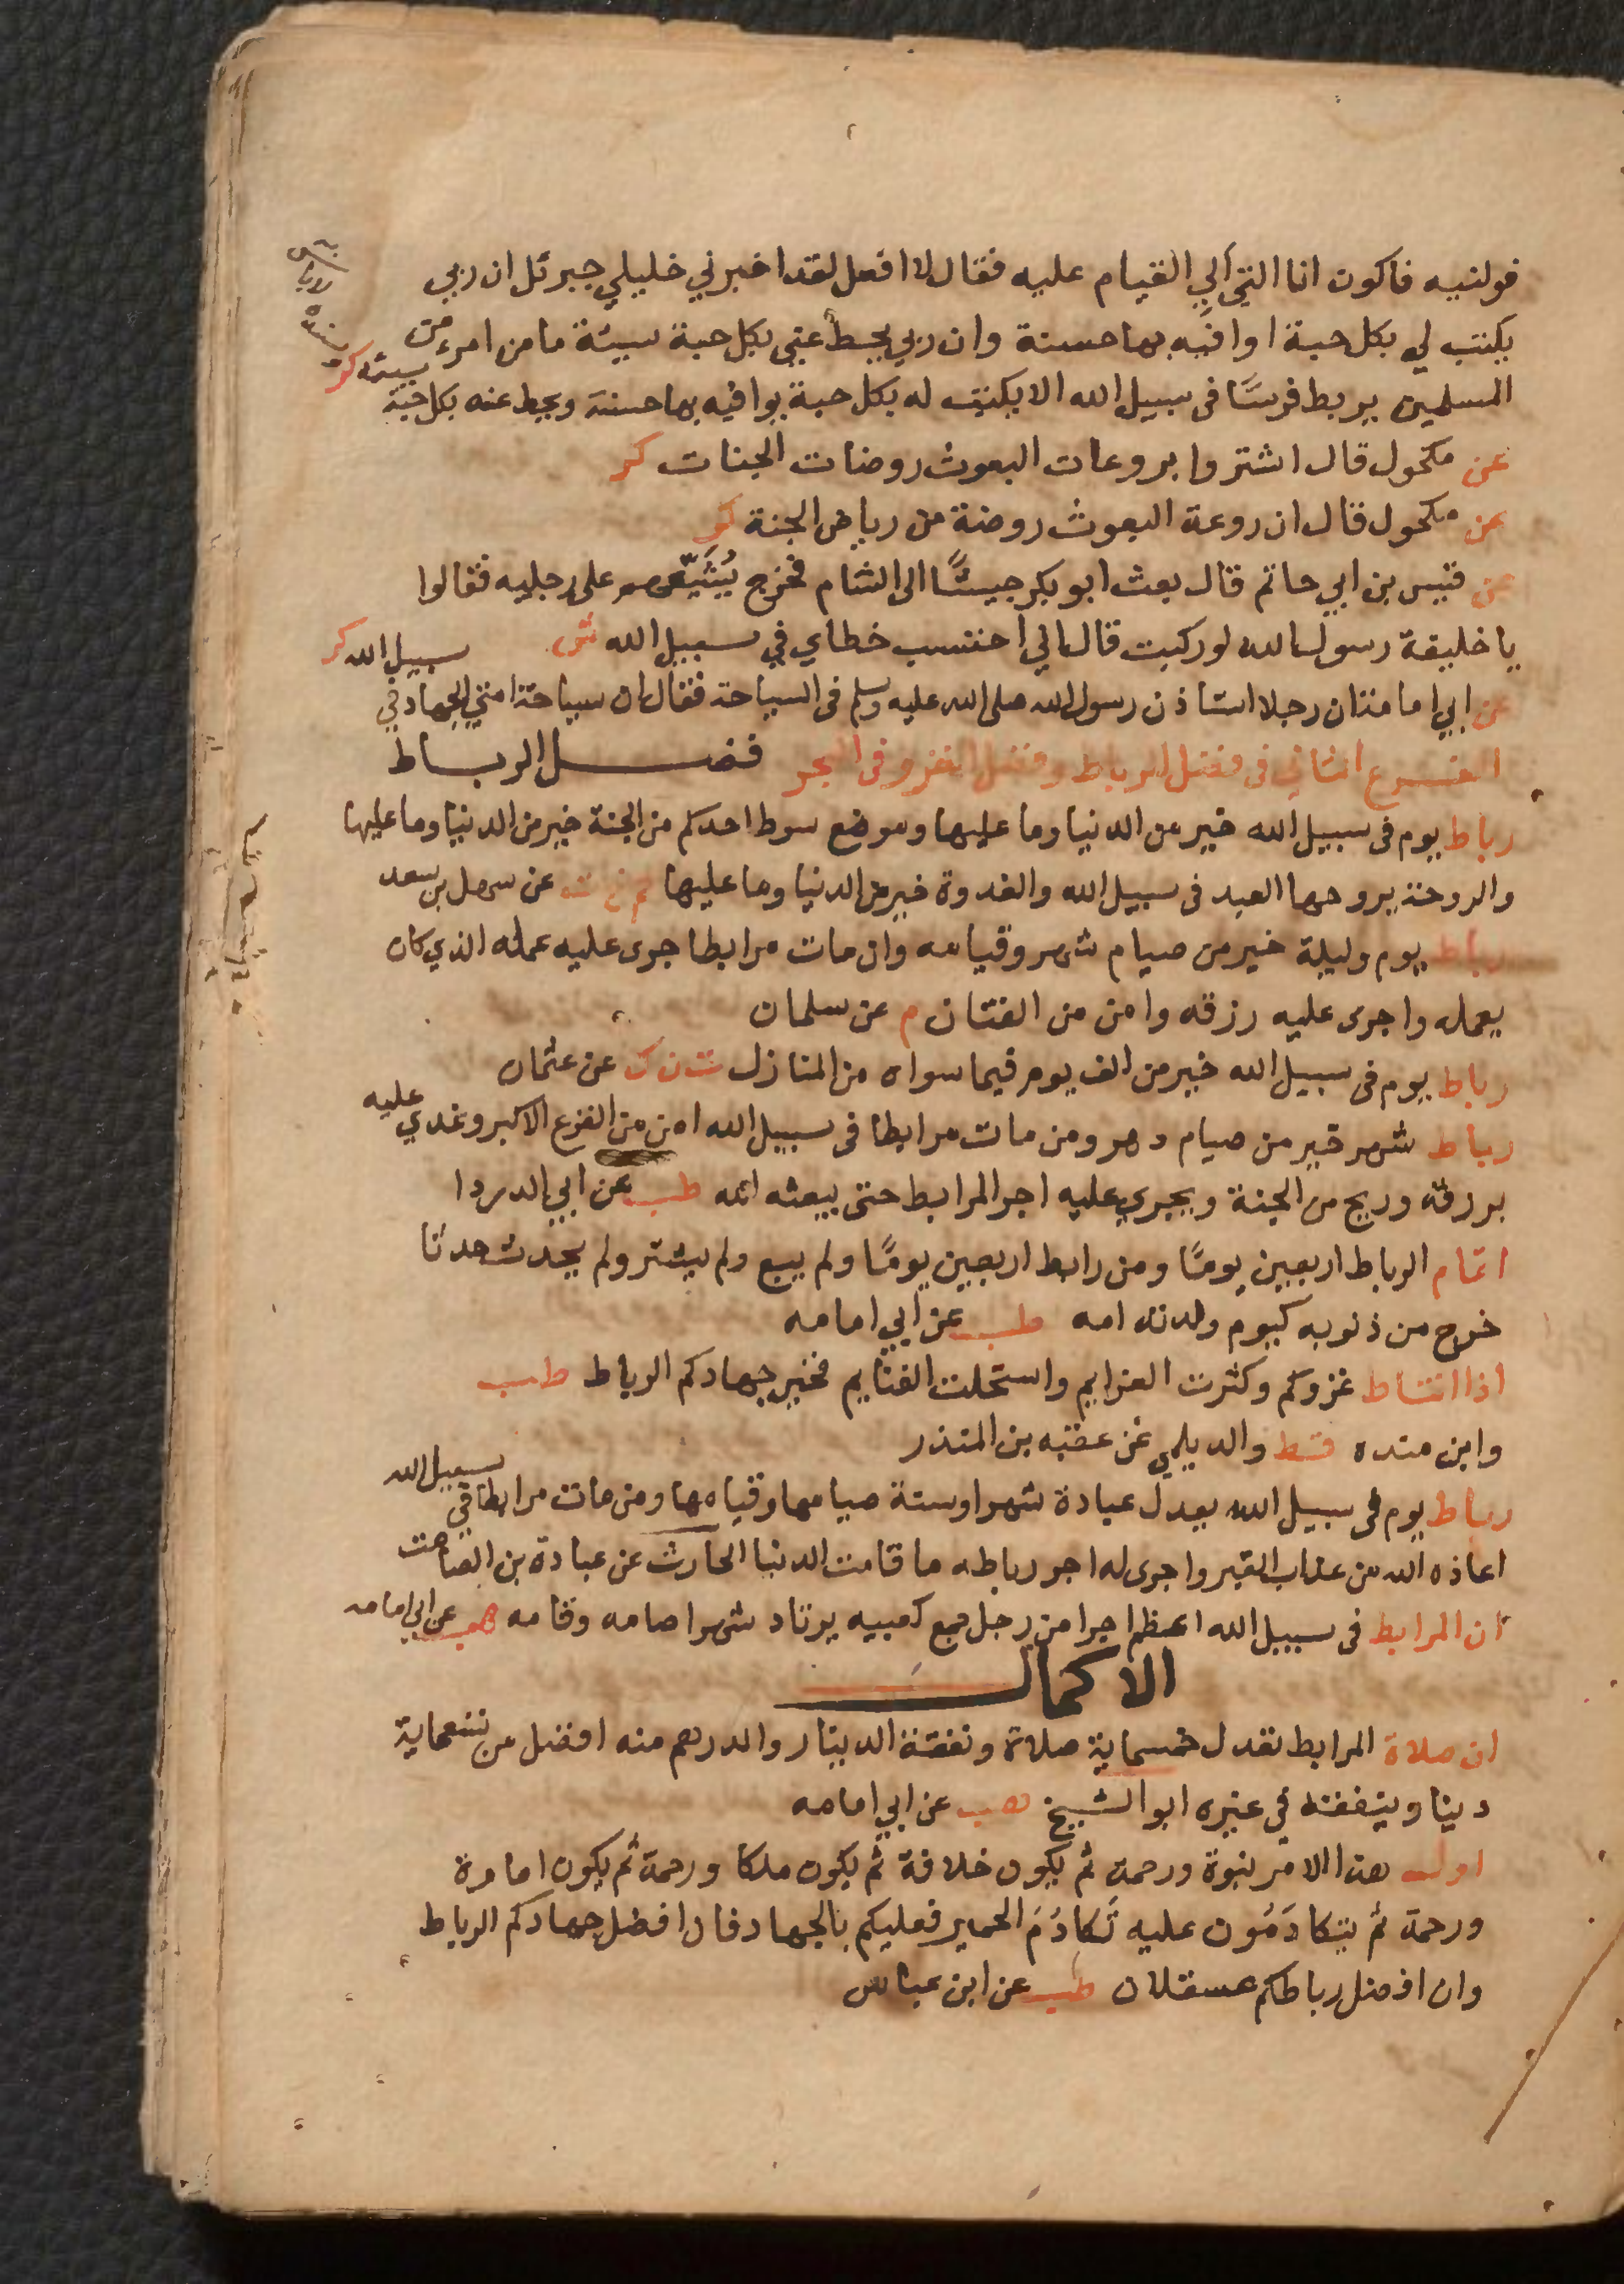 فولنيه فاكون انا التي الي القيام عليه فقال لا افعل لقد اخبرني خليلي جبرئل ان ربي
يكتب لي بكل حبة اوافيه بها حسنة وان ربي يحط عني بكل حبة سيئة ما من امرء من
المسلمين يربط فرسًا فى سبيل الله الا يكتب له بكل حبة يوافيه بها حسنة ويحط عنه بكل حبة سيئة كر
عن مكحول قال اشتروا بروعات البعوث روضات الجنات كر
عن مكحول قال ان روعة البعوث روضة من رياض الجنة كر
عن قيس بن ابي حاتم قال بعث ابو بكر جيشًا الى الشام فخرج يُشَيّعهم على رجليه فقالوا
يا خليفة رسول الله لو ركبت قال اني احتسب خطاي في سبيل الله ش
عن ابي امامة ان رجلا استاذن رسول الله صلى الله عليه وسلم فى السياحة فقال ان سياحة امتي الجهاد في سبيل الله كر
الفرع الثاني فى فضل الرباط وفضل الغزو فى البحر فضل الرباط
رباط يوم فى سبيل الله خير من الدنيا وما عليها وموضع سوط احدكم من الجنة خير من الدنيا وما عليها
والروحة يروحها العبد فى سبيل الله والغدوة خير من الدنيا وما عليها حم خ ت عن سهل بن سعد
رباط يوم وليلة خير من صيام شهر وقيامه وان مات مرابطا جرى عليه عمله الذي كان
يعمله واجرى عليه رزقه وامن من الفتان م عن سلمان
رباط يوم فى سبيل الله خير من الف يوم فيما سواه من المنازل ت ن ك عن عثمان
رباط شهر خير من صيام دهر ومن مات مرابطا فى سبيل الله امن من الفزع الاكبر وغدي عليه
برزقه وريح من الجنة ويجري عليه اجر المرابط حتى يبعثه الله طب عن ابي الدردا
اتمام الرباط اربعين يومًا ومن رابط اربعين يومًا ولم يبع ولم يشتر ولم يحدث حدثا
خرج من ذنوبه كيوم ولدته امه طب عن ابي امامه
اذا انتاط غزوكم وكثرت العزايم واستحلت الغنايم فخير جهادكم الرباط طب
وابن منده قط والديلمي عن عتبه بن المنذر
رباط يوم فى سبيل الله يعدل عبادة شهر او سنة صيامها وقيامها ومن مات مرابطا في سبيل الله
اعاذه الله من عذاب القبر واجرى له اجر رباطه ما قامت الدنيا الحارث عن عبادة بن الصامت
ان المرابط فى سبيل الله اعظم اجرا من رجل جمع كعبيه يرتاد شهرا صامه وقامه هب عن ابي امامه
الاكمال
ان صلاة المرابط تعدل خمسماية صلاة ونفقة الدينار والدرهم منه افضل من تسعماية
دينار ينفقه في غيره ابو الشيخ هب عن ابي امامه
اول هذا الامر نبوة ورحمة ثم يكون خلافة ثم يكون ملكا ورحمة ثم يكون امارة
ورحمة ثم يتكادَمُون عليه تَكادُمَ الحمير فعليكم بالجهاد فان افضل جهادكم الرباط
وان افضل رباطكم عسقلان طب عن ابن عباس